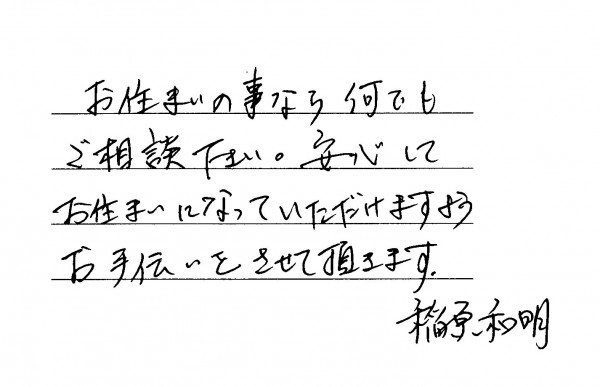 お住まいの事なら何でも
ご相談下さい。安心して
お住まいになっていただけますよう
お手伝いをさせて頂きます。
稲原和明